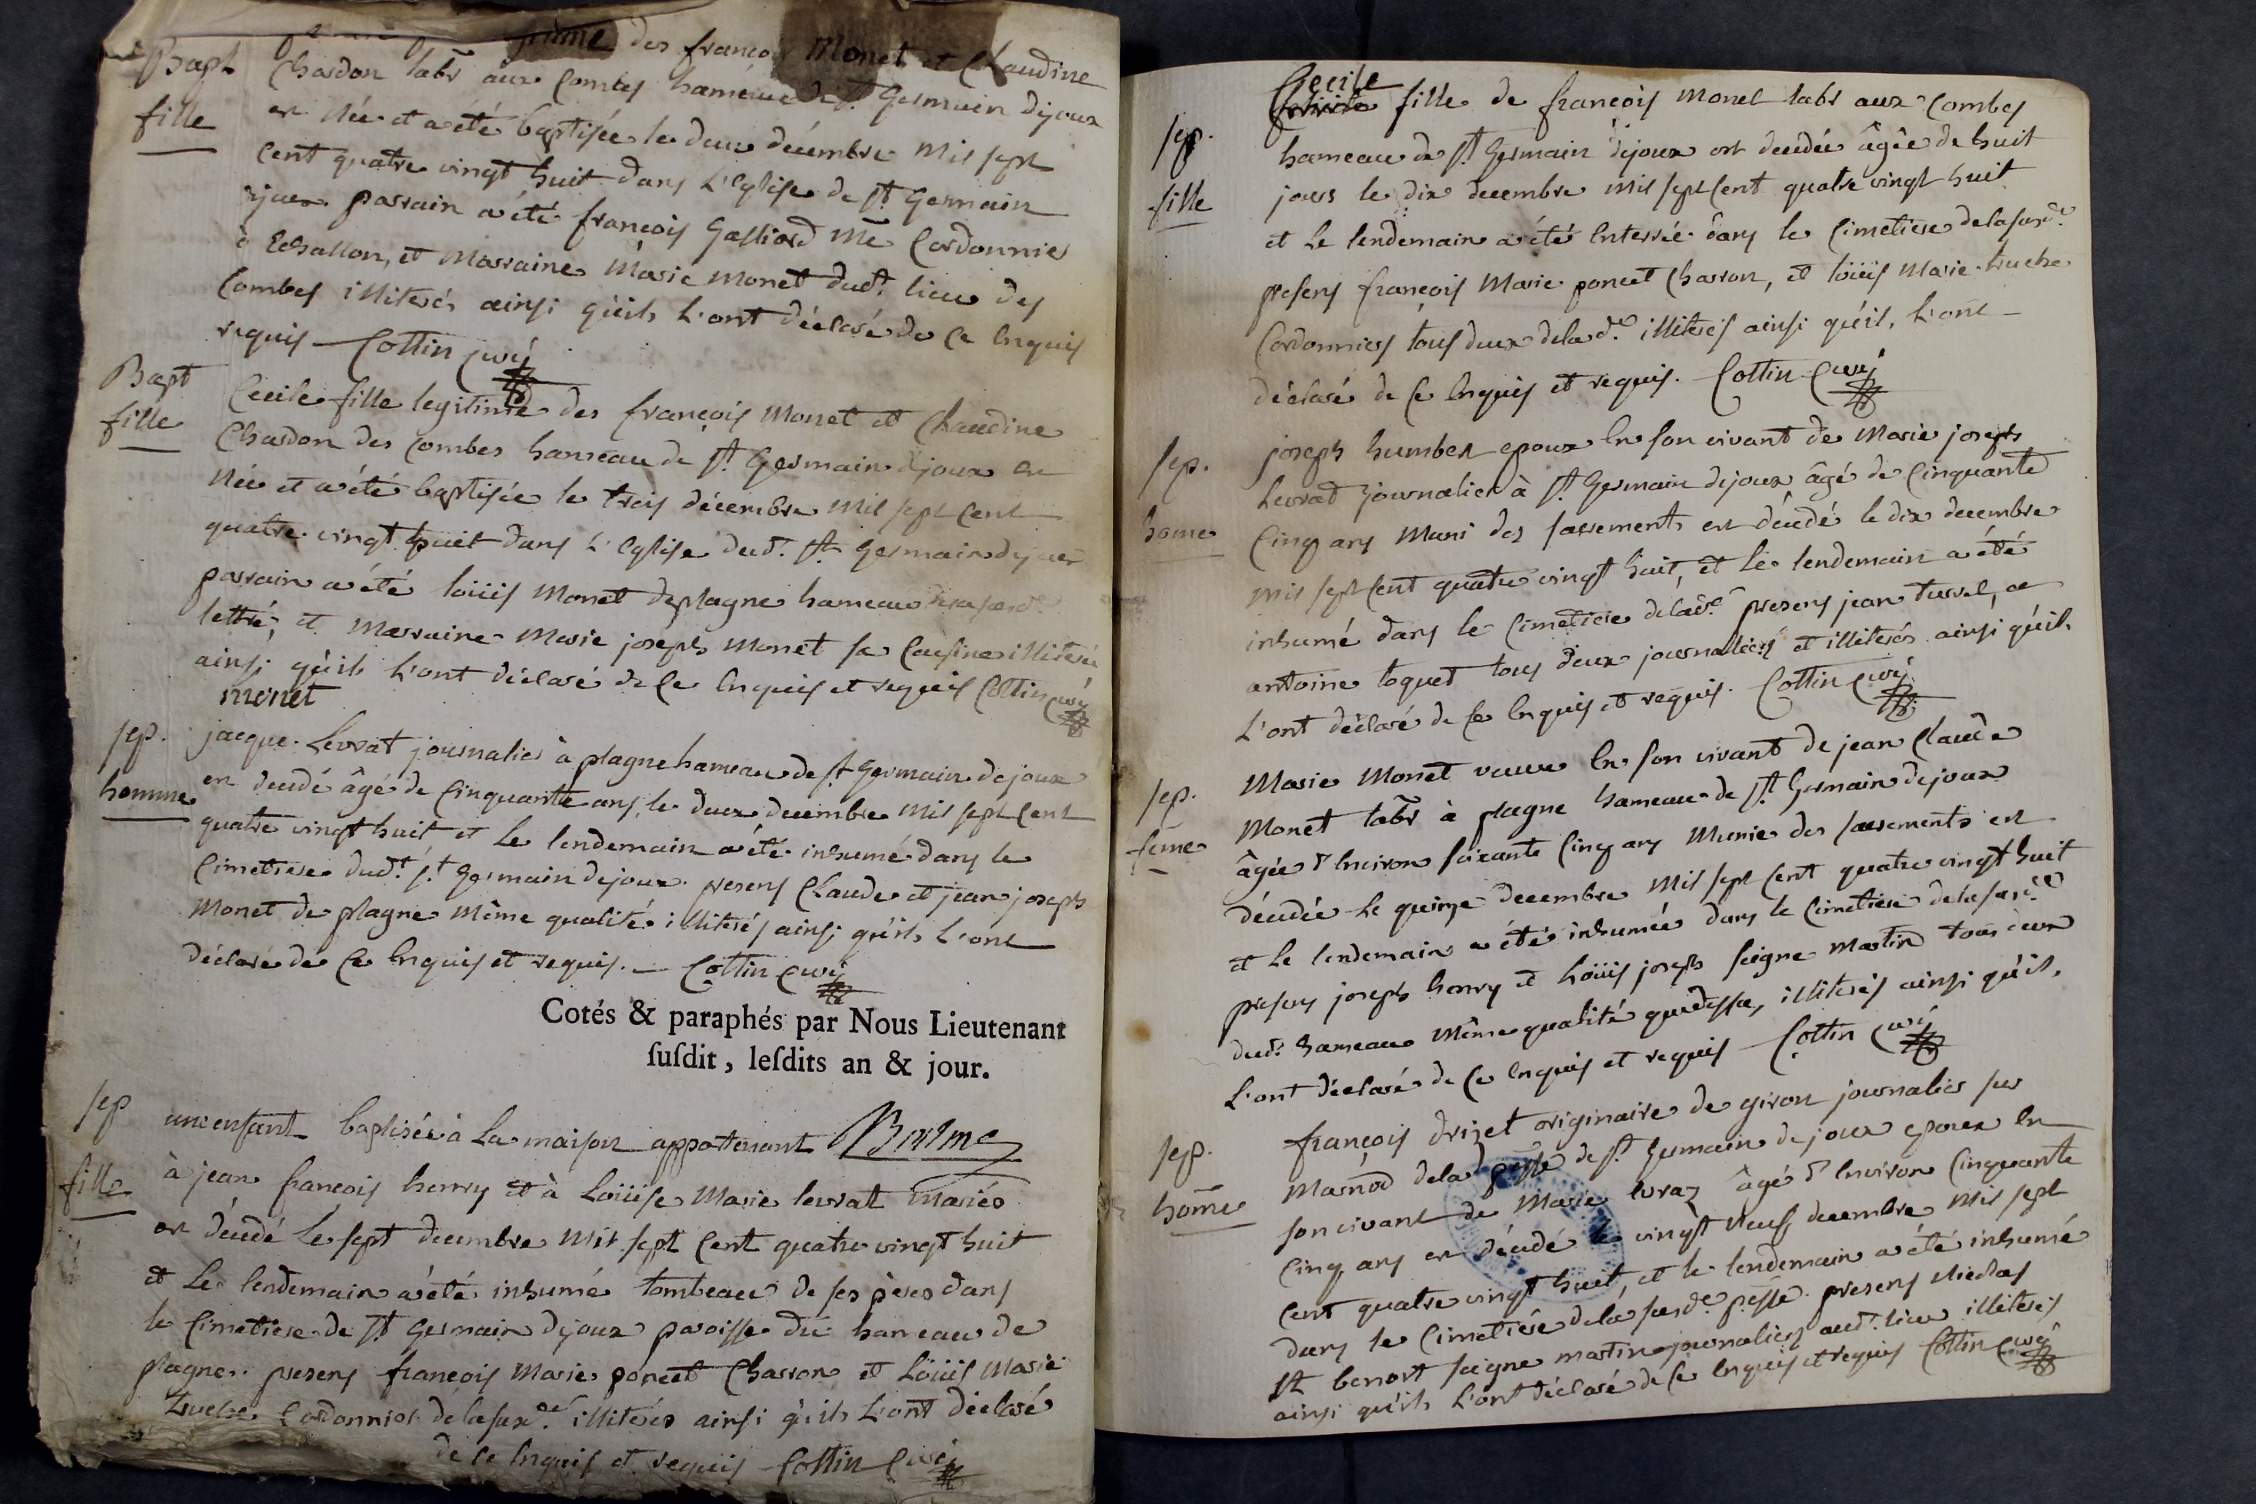 Bapt
fille
des francois Monet et Claudine
Chardon labr aux Combes hameau de St. Germain dijoux
est Née et a été baptisée le deux décembre mil sept
cent quatre vingt huit dans L'Eglise de St. Germain
dijoux parrain a été francois Galliard Me Cordonnier
à Echallon, et Marraine Marie Monet dudt. lieu des
Combes illiterés ainsi qu'ils L'ont déclaré de Ce Enquis
requis Cottin curé
Bapt
fille
Cecile fille legitime des françois Monet et Claudine
Chardon des Combes hameau de St. Germain dijoux est
Née et a été baptisée le trois décembre mil sept Cent
quatre vingt huit dans L'Eglise dudt. St Germain dijoux
parrain a été loüis Monet deplagne hameau
lettré, et Marraine Marie joseph Monet sa Cousine illiterée
ainsi qu'ils L'ont déclaré de Ce Enquis et requis Cottin curé
monet
sep.
homme
jacque Levrat journalier à plagne hameau de St Germain dejoux
est decedé âgé de Cinquante ans, le deux decembre mil sept Cent
quatre vingt huit et Le lendemain a été inhumé dans le
Cimetiere dudt. St Germain dejoux. presens Claude et jean joseph
Monet de plagne même qualité illiterés ainsi qu'ils L'ont
déclaré de Ce Enquis et requis. Cottin curé
Cotés & paraphés par Nous Lieutenant
susdit, lesdits an & jour.
sep
fille
un enfant baptisée à La maison appartenant
à jean francois henry et à Loüise Marie levrat mariés
est décedé Le sept decembre mil sept Cent quatre vingt huit
et Le lendemain a été inhumé tombeau de ses pères dans
le Cimetiere de St Germain dijoux paroisse du hameau de
plagne. presens francois Marie poncet Charron et Loüis Marie
truche Cordonnier de la susde. illiterés ainsi qu'ils L'ont déclaré
de Ce Enquis et requis Cottin curé
Cecile
sep.
fille
fille de françois Monet labr aux Combes
hameau de St. Germain dijoux est decedée âgée de huit
jours le dix decembre mil sept Cent quatre vingt huit
et Le lendemain a été Enterrée dans le Cimetiere delasusde.
presens françois Marie poncet Charron, et loüis Marie truche
Cordonniers tous deux delade. illiterés ainsi qu'ils L'ont
déclaré de Ce Enquis et requis. Cottin curé
sep.
home
joseph humbert epoux En son vivant de Marie joseph
Levrat journalier à St. Germain dijoux âgé de Cinquante
Cinq ans Muni des sacrements est décedé le dix decembre
mil sept Cent quatre vingt huit, et Le lendemain a été
inhumé dans le Cimetiere delade. presens jean turrel, et
antoine toquet tous deux journaliers et illiterés ainsi qu'ils
L'ont déclaré de Ce Enquis et requis. Cottin curé
sep.
feme
Marie Monet veuve En son vivant de jean Claude
Monet labr à plagne hameau de St. Germain dejoux
âgée d'Environ soixante Cinq ans Munie des sacrements est
décedée Le quinze decembre mil sept Cent quatre vingt huit
et Le lendemain a été inhumée dans le Cimetiere delasusde.
presens joseph henry et Loüis joseph seigne martin tous deux
dudt. hameau même qualité que dessus, illiterés ainsi qu'ils
L'ont déclaré de Ce Enquis et requis Cottin curé
sep.
home
françois drizet originaire de giron journalier sur
Marnod de la psse de St. Germain de joux epoux En
son vivant de Marie levraz âgé d'Environ Cinquante
Cinq ans est décedé le vingt Neuf decembre mil sept
cent quatre vingt huit, et le lendemain a été inhumé
dans le Cimetiére dela susde. psse. presens Nicolas
St benoit seigne martin journaliers audt. lieu illiterés
ainsi qu'ils L'ont déclaré de Ce Enquis et requis Cottin Curé